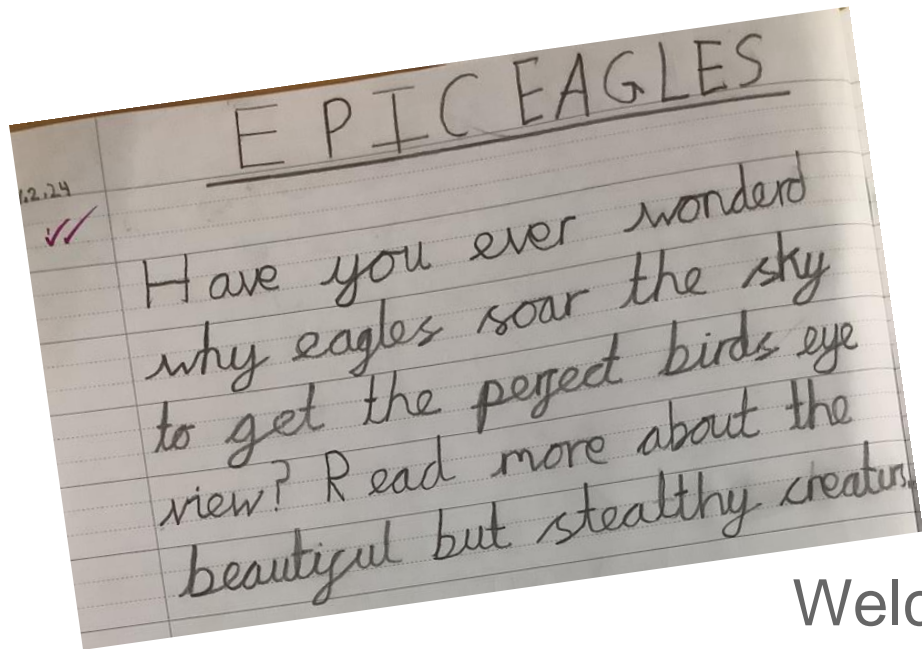 EPIC EAGLES
.2.24
Have you ever wonderd
why eagles soar the sky
to get the perfect birds eye
view? Read more about the
beautiful but stealthy
Welc